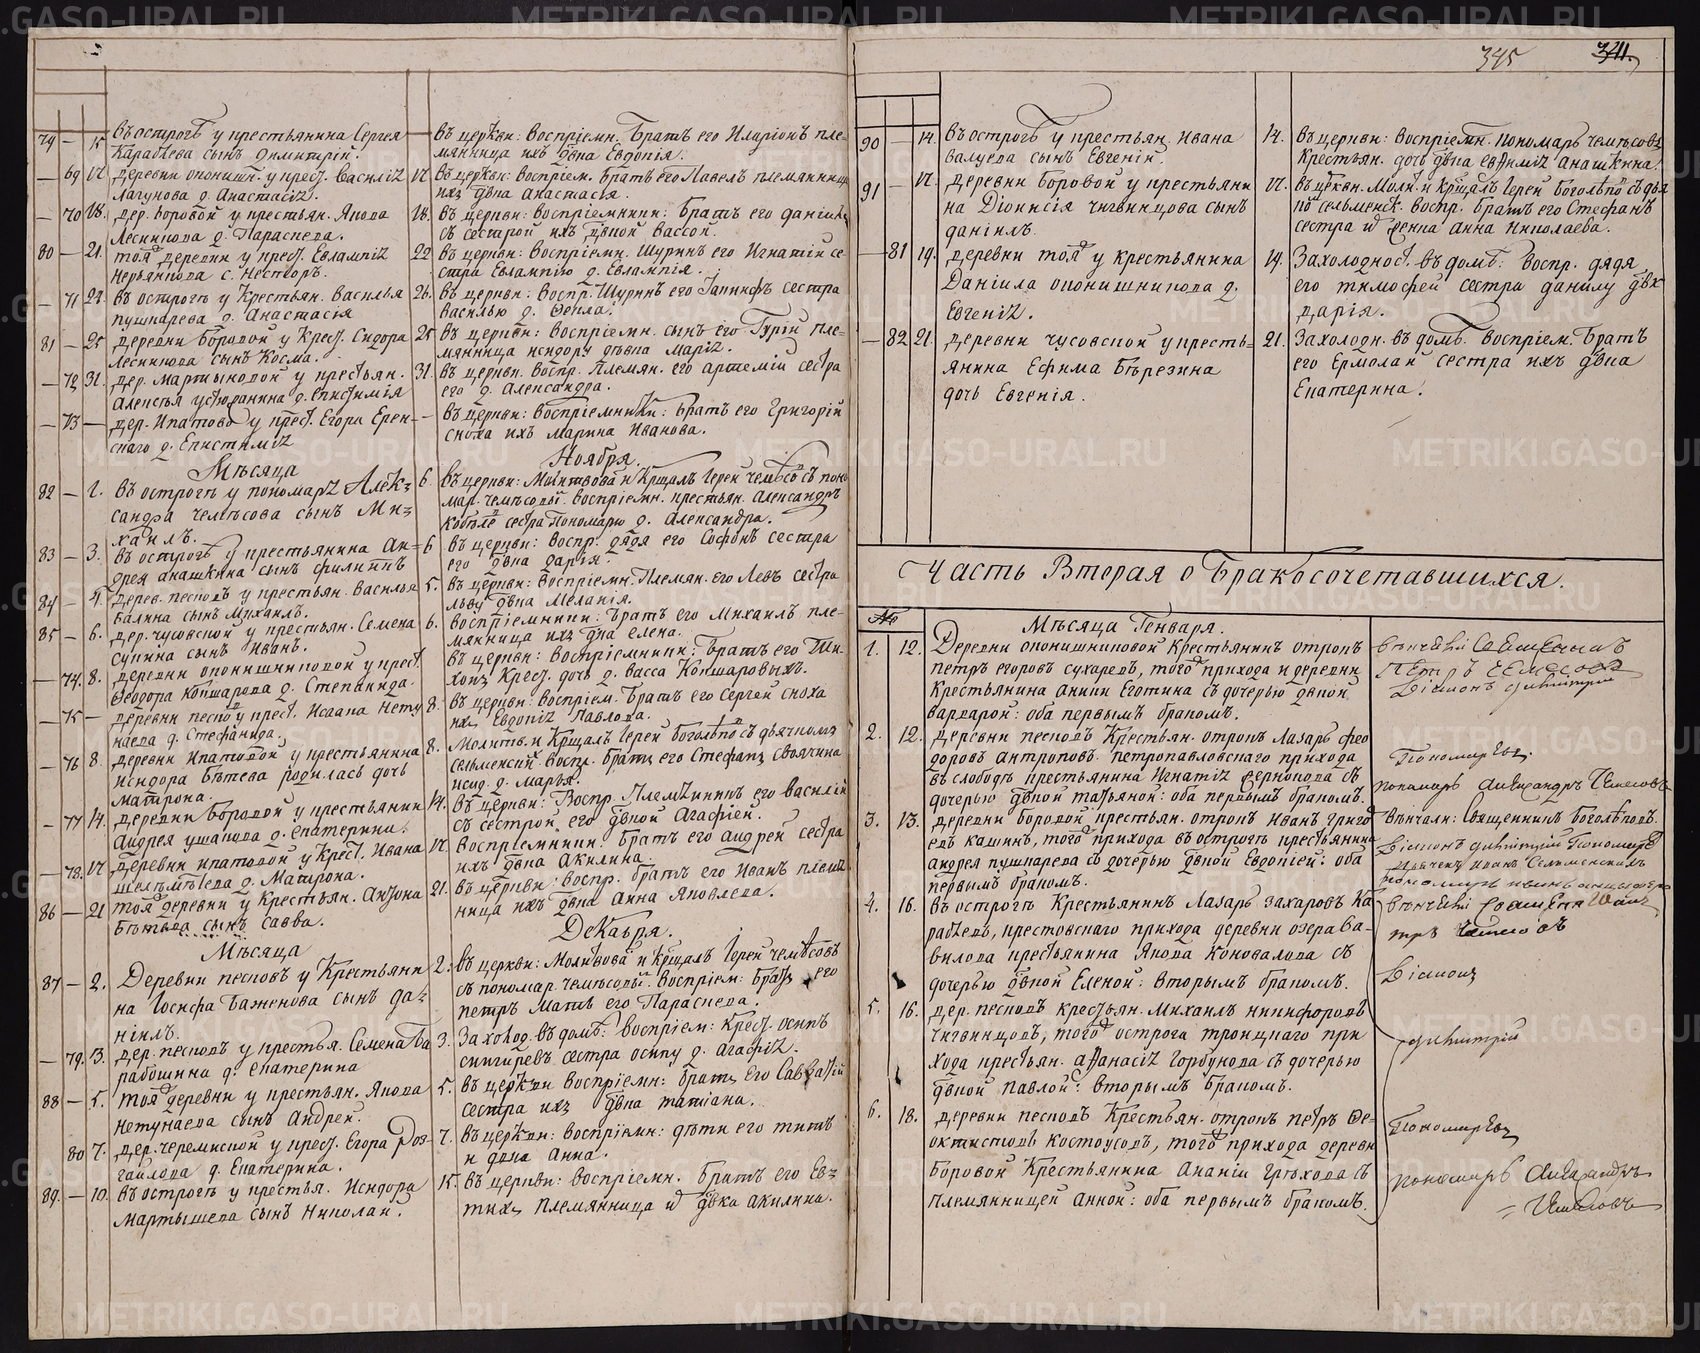 79 – 15 Въ острогѣ у крестьянина Сергея
Карабаева сынъ Димитрій.
въ церкви: воспріемн. братъ его Иларіонъ пле-
мянница ихъ дѣвка Евдокія.
– 69 17 деревни опонишн. у крест. Василія
Лагунова д. Анастасія.
17 въ церкви: воспріем. братъ его Павелъ племянница
ихъ дѣвка Анастасія.
– 70 18. дер. Боровой у крестьян. Якова
Лесникова д. Параскева.
18. въ церкви: воспріемники: братъ его Даніилъ
съ сестрой ихъ дѣвкой Вассой.
80 – 21. той деревни у крест. Евлампія
с. Несторъ.
22 въ церкви: воспріемн. шуринъ его Игнатій се-
стра Евлампію д. Евлампія.
– 71 22. въ острогѣ у крестьян. Василья
Пушкарева д. Анастасія
26. въ церкви: воспр. шуринъ его сестра
Василью д. Фекла.
81 – 25 деревни Боровой у крест. Сидора
Лесникова сынъ Косма.
25 въ церкви: воспріемн. сынъ его Гурій пле-
мянница Исидору дѣвка Марія.
– 72 31. дер. Мартыновой у крестьян.
Алексѣя Устюранина д. Епистимія
31. въ церкви. воспр. племян. его Артемій сестра
его д. Александра.
– 73 – дер. Ипатова у крест. Егора Ерен-
скаго д. Епистимія
– въ церкви: воспріемники: братъ его Григорій
сноха ихъ Марина Иванова.
Мѣсяца Ноября.
82 – 1. въ острогѣ у пономаря Алек-
сандра Чемѣсова сынъ Ми-
хаилъ.
6. въ церкви: молитвовал и крщалъ Іерей Чемѣсовъ съ поно-
мар. Чемѣсовы. воспріемн. крестьян. Александръ
сестра пономарю д. Александра.
83 – 3. въ острогѣ у крестьянина Ан-
дрея Анашкина сынъ Филиппъ
6 въ церкви: воспр. дядя его Софонъ сестра
его дѣвка Дарія.
84 – 4. дерев. песковъ у крестьян. Василья
Балина сынъ Михаилъ.
5. въ церкви: воспріемн. племян. его Левъ сестра
Льву дѣвка Меланія.
85 – 6. дер. Чусовской у крестьян. Семена
Супина сынъ Иванъ.
6. воспріемники: братъ его Михаилъ пле-
мянница ихъ дѣвка Елена.
– 74. 8. деревни опонишниковой у крест.
Ѳеодора Кокшарова д. Степанида.
въ церкви: воспріемники: братъ его Ти-
хонъ крест. дочь д. Васса Кокшаровыхъ.
– 75 – деревни песков у крест. Исаака Нету-
наева д. Стефанида.
8. въ церкви: воспріем. братъ его Сергей сноха
ихъ Евдокія Павлова.
– 76 8. деревни Ипатовой у крестьянина
Исидора Бѣтева родилась дочь
Матрона.
8. молитв. и крщалъ Іерей Боголѣповъ съ дьячкомъ
Сельменски. воспр. братъ его Стефанъ своячина
Исид. д. Марья.
– 77 14. деревни Боровой у крестьянин
Андрея Ушакова д. Екатерина.
14. въ церкви: воспр. племянникъ его Василій
съ сестрой его дѣвкой Агафіей.
– 78. 17 деревни Ипатовой у крест. Ивана
д. Матрона.
17. воспріемники. братъ его Андрей сестра
ихъ дѣвка Акилина.
86 – 21 той деревни у крестьян. Антона
Бѣтева сынъ Савва.
21. въ церкви: воспр. братъ его Иванъ племя-
нница ихъ дѣвка Анна Яковлева.
Мѣсяца Декабря.
87 – 2. Деревни песковъ у крестьяни-
на Іосифа Баженова сынъ Да-
ніилъ.
2. въ церкви: молитвовал и крщалъ Іерей Чемѣсовъ
съ пономар. Чемѣсовы. воспріем: братъ его
Петръ мать его Параскева.
– 79. 3. дер. песковъ у крестья. Семена Ба-
рабошина д. Екатерина
3. За холод. въ домѣ: воспріем: крест. Осипъ
Снигиревъ сестра Осипу д. Агафія.
88 – 5. той деревни у крестьян. Якова
Нетунаева сынъ Андрей.
5. въ церкви воспріемн: братъ его Савватій
сестра ихъ дѣвка Татіана.
80 7. дер. Черемиской у крест. Егора Роз-
гайлова д. Екатерина.
7. въ церкви: воспріемн: дѣти его Титъ
и дѣвка Анна.
89. – 10. въ острогѣ у крестья. Исидора
Мартышева сынъ Николай.
15. въ церкви: воспріемн. братъ его Ев-
тихъ племянница и дѣвка Акилина.
345 341.
90 – 14. въ острогѣ у крестьян. Ивана
Валуева сынъ Евгеній.
14. въ церкви: воспріемн. пономарь Чемѣсовъ
Крестьян. дочь дѣвка Евфимія Анашкина.
91 – 17. деревни Боровой у крестьяни-
на Діонисія Чигвинцова сынъ
Даніилъ.
17. въ церкви. молит. и крщалъ Іерей Боголѣпо съ дья-
по Сельменск. воспр. братъ его Стефанъ
сестра Анна Николаева.
– 81 19. деревни той у крестьянина
Даніила опонишникова д.
Евгенія.
19. За холодност. въ домѣ: воспр. дядя
его Тимофей сестра Данилу дѣвк
Дарія.
– 82 21. деревни Чусовской у кресть-
янина Ефима Бѣрезина
дочь Евгенія.
21. За холодн. въ домѣ. воспріем. братъ
его Ермолай сестра ихъ дѣвка
Екатерина.
Часть Вторая о Бракосочетавшихся.
№
Мѣсяца Генваря.
1. 12. Деревни опонишниковой крестьянинъ отрокъ
Петръ Егоровъ Сухаревъ, того прихода и деревни
Крестьянина Аники Еготина съ дочерью дѣвкой
Варварой: оба первымъ бракомъ.
вѣнчали Священникъ
Петръ Чемесовъ
Діаконъ Димитрій
2. 12. деревни песковъ Крестьян. отрокъ Лазарь Фео-
доровъ Антроповъ. Петропавловскаго прихода
въ слободѣ крестьянина Игнатія съ
дочерью дѣвкой Татьяной: оба первымъ бракомъ.
Пономаревъ.
пономарь Александръ Чемесовъ
3. 13. деревни Боровой крестьян. отрокъ Иванъ Григо-
евъ Кашинъ, того прихода въ острогѣ крестьянина
Андрея Пушкарева съ дочерью дѣвкой Евдокіей: оба
первымъ бракомъ.
Вѣнчали: Священникъ Боголѣповъ.
Діаконъ Димитрій Пономаревъ
Дьячекъ Иванъ Сельменскихъ
4. 16. въ острогѣ Крестьянинъ Лазарь Захаровъ Ка-
рабаевъ, крестовскаго прихода деревни озера Ва-
вилова крестьянина Якова Коновалова съ
дочерью дѣвкой Еленой: вторымъ бракомъ.
вѣнчали Священникъ
Чемесовъ
Діаконъ
5. 16. дер. песковъ крестьян. Михаилъ Никифоровъ
Чигвинцовъ, того острога троицкаго при-
хода крестьян. Афанасія Горбунова съ дочерью
дѣвкой Павлой: вторымъ бракомъ.
Димитрій
6. 18. деревни песковъ Крестьян. отрокъ Петръ Фе-
октистовъ Костоусовъ, того прихода деревни
Боровой Крестьянина Ананіи Грѣхова съ
племянницей Анной: оба первымъ бракомъ.
Пономаревъ
пономарь Александръ
Чемесовъ
METRIKI.GASO-URAL.RU